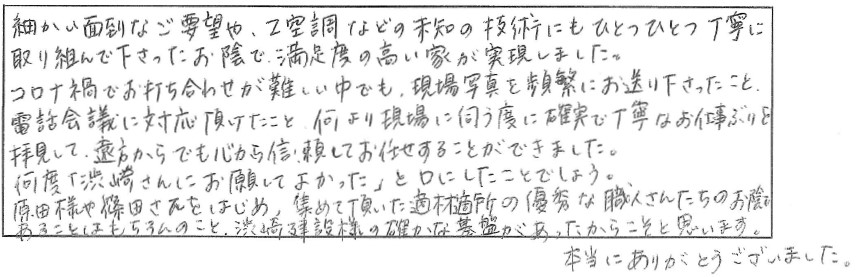 細かい面倒なご要望や、Z空調などの未知の技術にもひとつひとつ丁寧に
取り組んで下さったお陰で、満足度の高い家が実現しました。
コロナ禍でお打ち合わせが難しい中でも、現場写真を頻繁にお送り下さったこと、
電話会議に対応頂けたこと、何より現場に伺う度に確実で丁寧なお仕事ぶりを
拝見して、遠方からでも心から信頼してお任せすることができました。
何度「渋崎さんにお願してよかった」と口にしたことでしょう。
原田様や篠田さんをはじめ、集めて頂いた適材適所の優秀な職人さんたちのお陰で
あることはもちろんのこと、渋崎建設様の確かな基盤があったからこそと思います。
本当にありがとうございました。